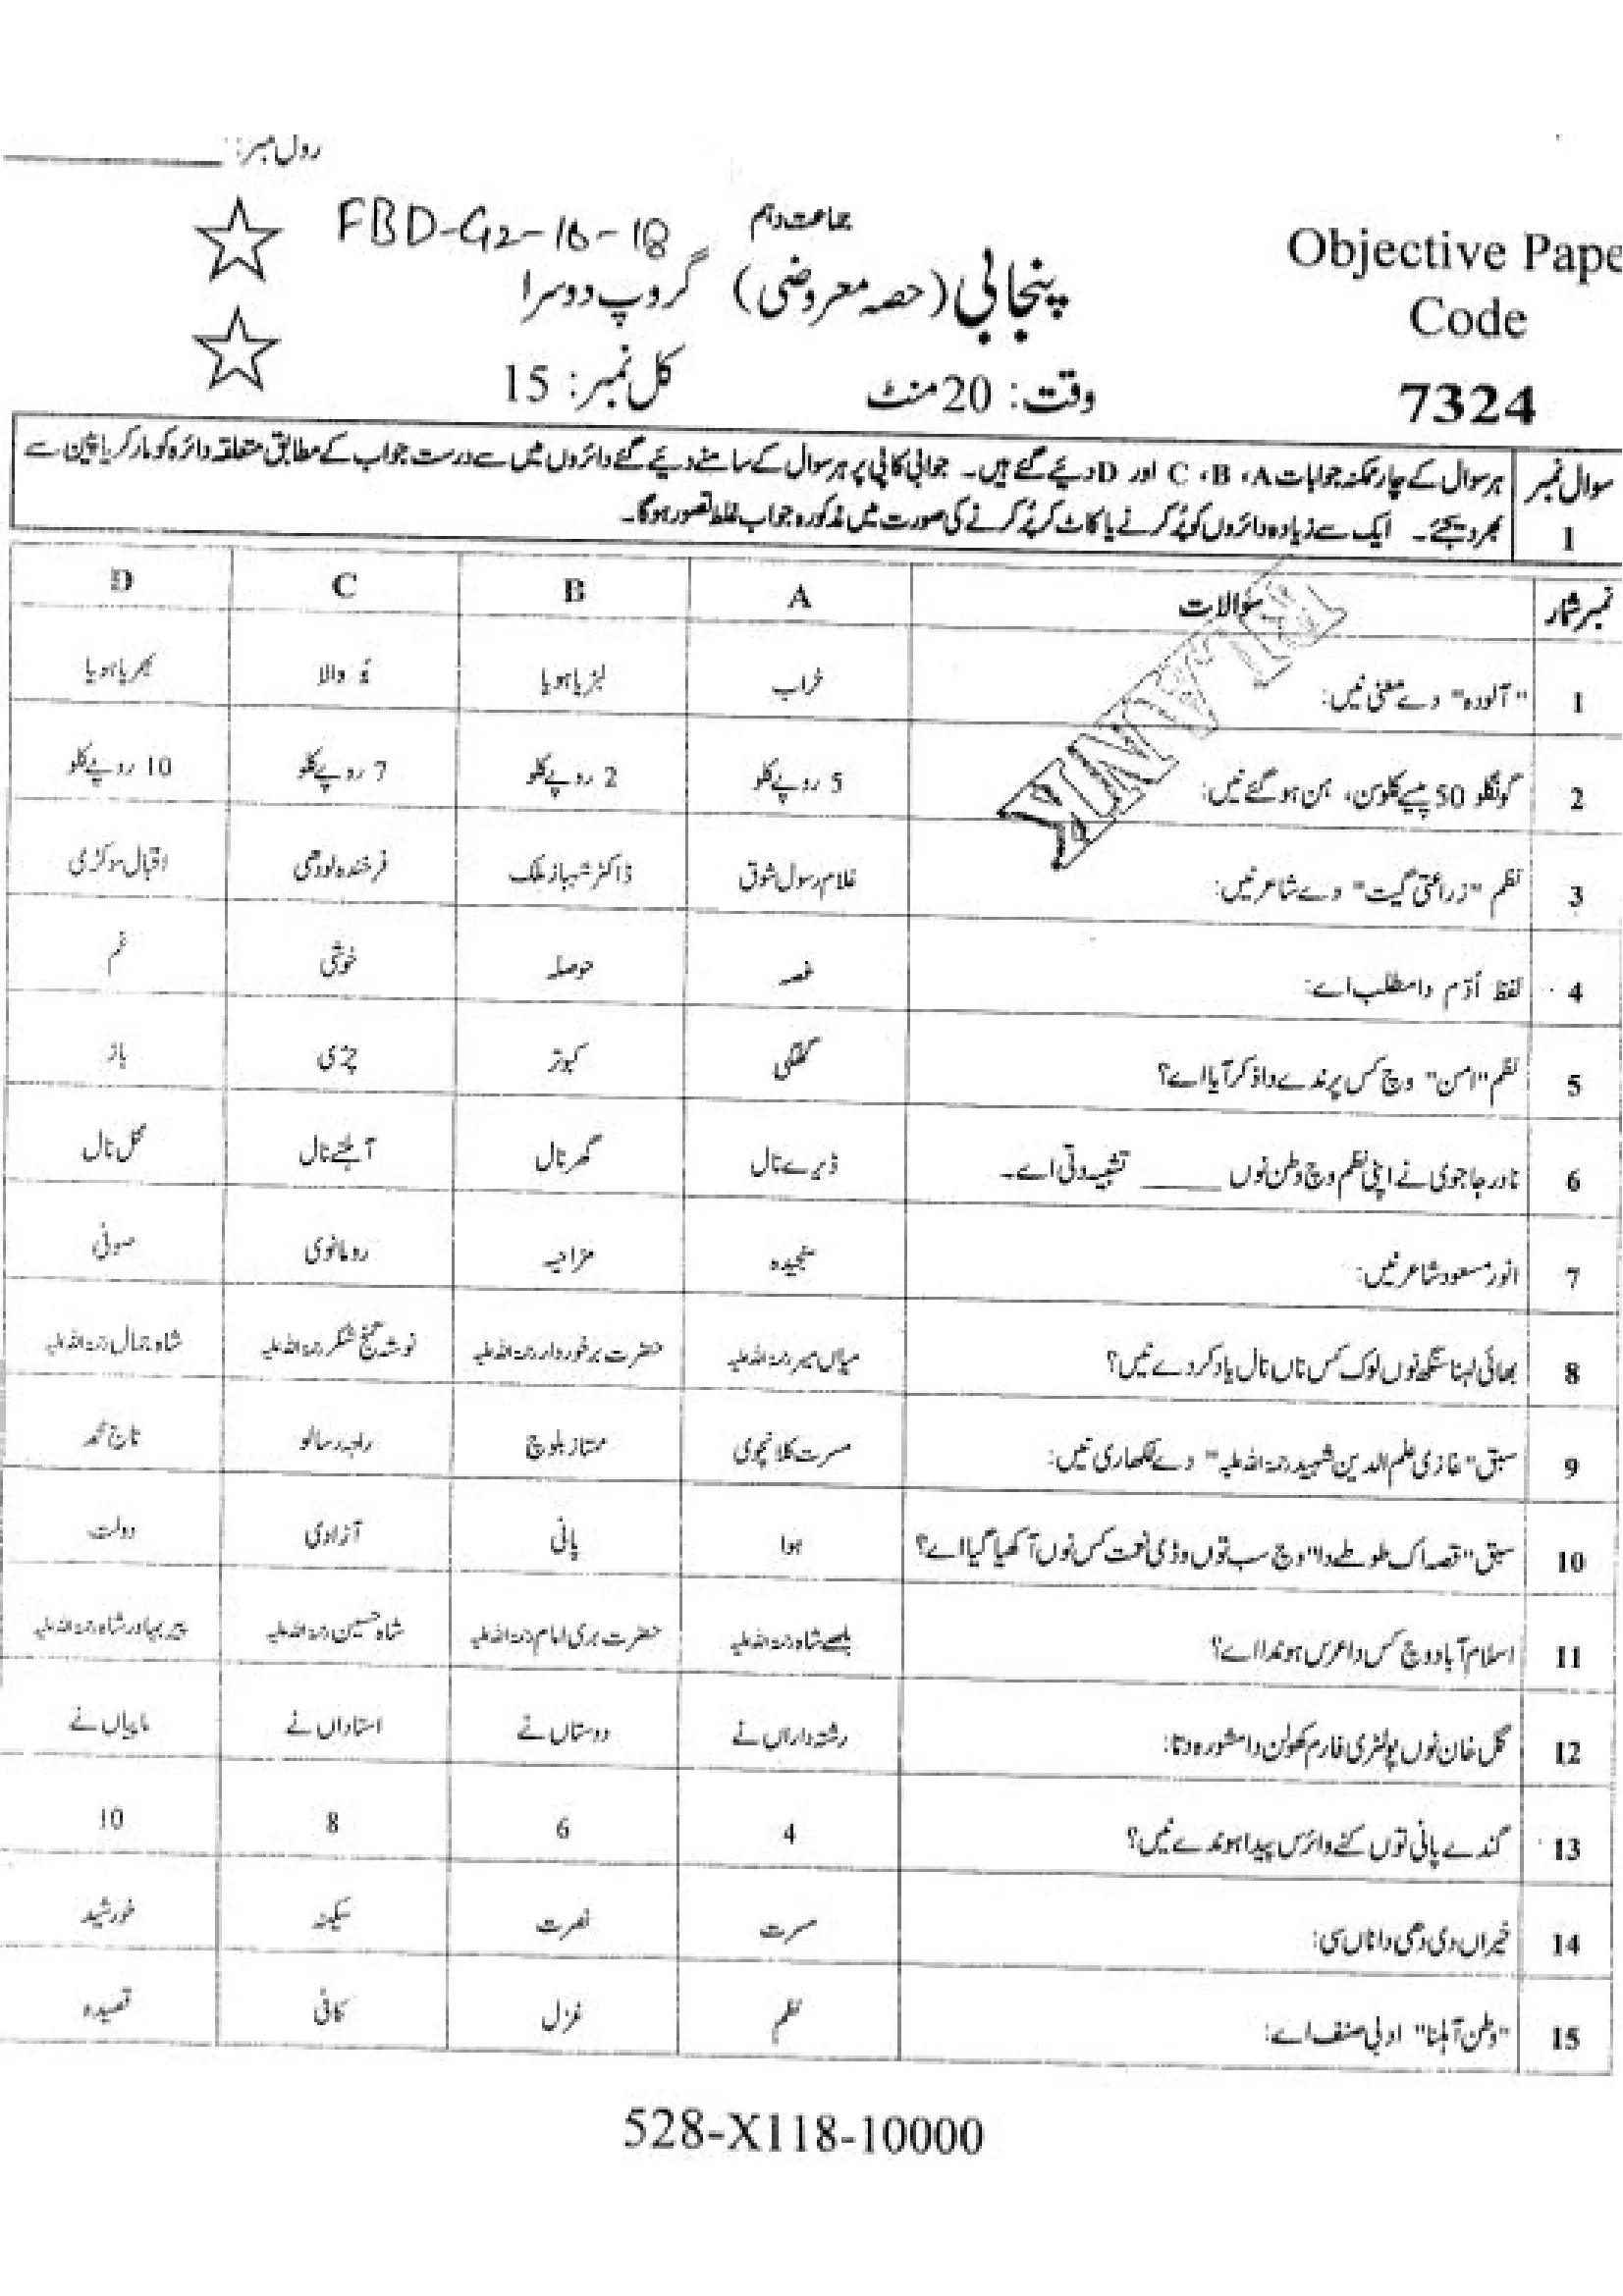 رول نمبر:
FBD-G2-16-18
جماعت دہم
Objective Pape
Code
7324
پنجابی (حصہ معروضی) گروپ دوسرا
وقت: 20 منٹ کل نمبر: 15
سوال نمبر 1 ہر سوال کے چار ممکنہ جوابات A، B، C اور D دیئے گئے ہیں۔ جوابی کاپی پر ہر سوال کے سامنے دیئے گئے دائروں میں سے درست جواب کے مطابق متعلقہ دائرہ کو مارکر یا پین سے
بھر دیجئے۔ ایک سے زیادہ دائروں کو پُر کرنے یا کاٹ کر پُر کرنے کی صورت میں مذکورہ جواب غلط تصور ہوگا۔
نمبر شمار سوالات A B C D
1 "آلودہ" دے معنی نیں: خراب لبڑیا ہویا بُو والا بھریا ہویا
2 گونگلو 50 پیسے کلو سن، ہن ہو گئے نیں: 5 روپے کلو 2 روپے کلو 7 روپے کلو 10 روپے کلو
3 نظم "زراعتی گیت" دے شاعر نیں: غلام رسول شوق ڈاکٹر شہباز ملک فرخندہ لودھی اقبال سوکڑی
4 لفظ اُدّم دا مطلب اے: غصہ حوصلہ خوشی غم
5 نظم "امن" وچ کس پرندے دا ذکر آیا اے؟ گھگی کبوتر چڑی باز
6 نادر جاجوی نے اپنی نظم وچ وطن نوں ______ تشبیہ دتی اے۔ ڈیرے نال گھر نال آہلنے نال محل نال
7 انور مسعود شاعر نیں: سنجیدہ مزاحیہ رومانوی صوفی
8 بھائی لہنا سنگھ نوں لوک کس ناں نال یاد کردے نیں؟ میاں میر رحمۃ اللہ علیہ حضرت برخوردار رحمۃ اللہ علیہ نوشہ گنج شکر رحمۃ اللہ علیہ شاہ جمال رحمۃ اللہ علیہ
9 سبق "غازی علم الدین شہید رحمۃ اللہ علیہ" دے لکھاری نیں: مسرت کلانچوی ممتاز بلوچ راجہ رسالو تاج محمد
10 سبق "قصہ اک طوطے دا" وچ سب توں وڈی نعمت کس نوں آکھیا گیا اے؟ ہوا پانی آزادی دولت
11 اسلام آباد وچ کس دا عرس ہوندا اے؟ بلھے شاہ رحمۃ اللہ علیہ حضرت بری امام رحمۃ اللہ علیہ شاہ حسین رحمۃ اللہ علیہ پیر بہادر شاہ رحمۃ اللہ علیہ
12 گل خان نوں پولٹری فارم کھولن دا مشورہ دتا: رشتہ داراں نے دوستاں نے استاداں نے ماپیاں نے
13 گندے پانی توں کنے وائرس پیدا ہوندے نیں؟ 4 6 8 10
14 خیراں دی دھی دا ناں سی: مسرت نصرت سکینہ خورشید
15 "وطن آہلنا" ادبی صنف اے: نظم غزل کافی قصیدہ
BLANK
528-X118-10000